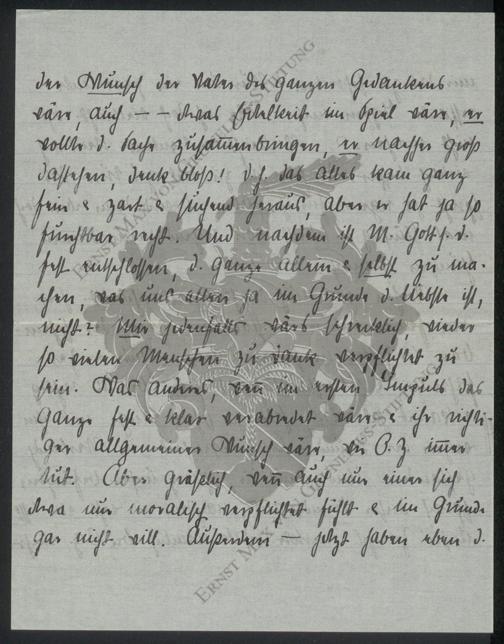 der Wunsch der Vater des ganzen Gedankens
wäre, auch – – etwas Eitelkeit im Spiel wäre, er
wollte d. Sache zusammenbringen, er nachher groß
dastehen, denk bloß! D.h. das alles kam ganz
fein & zart & suchend heraus, aber er hat ja so
furchtbar recht. Und nachdem ist M. Gott s. d.
fest entschlossen, d. Ganze allein & selbst zu ma-
chen, was uns allen ja im Grunde d. Liebste ist,
nicht? Mir jedenfalls wärs schrecklich, wieder
so vielen Menschen zu Dank verpflichtet zu
sein. Was anderes, wenn im ersten Impuls das
Ganze fest & klar verabredet wäre & ihr richti-
ger allgemeiner Wunsch wäre, wie O. Z. immer
tut. Aber gräßlich, wenn auch nur einer sich
etwa nur moralisch verpflichtet fühlt & im Grunde
gar nicht will. Außerdem – jetzt haben eben d.
ERNST MAX VON GRUNELIUS-STIFTUNG
ERNST MAX VON GRUNELIUS-STIFTUNG